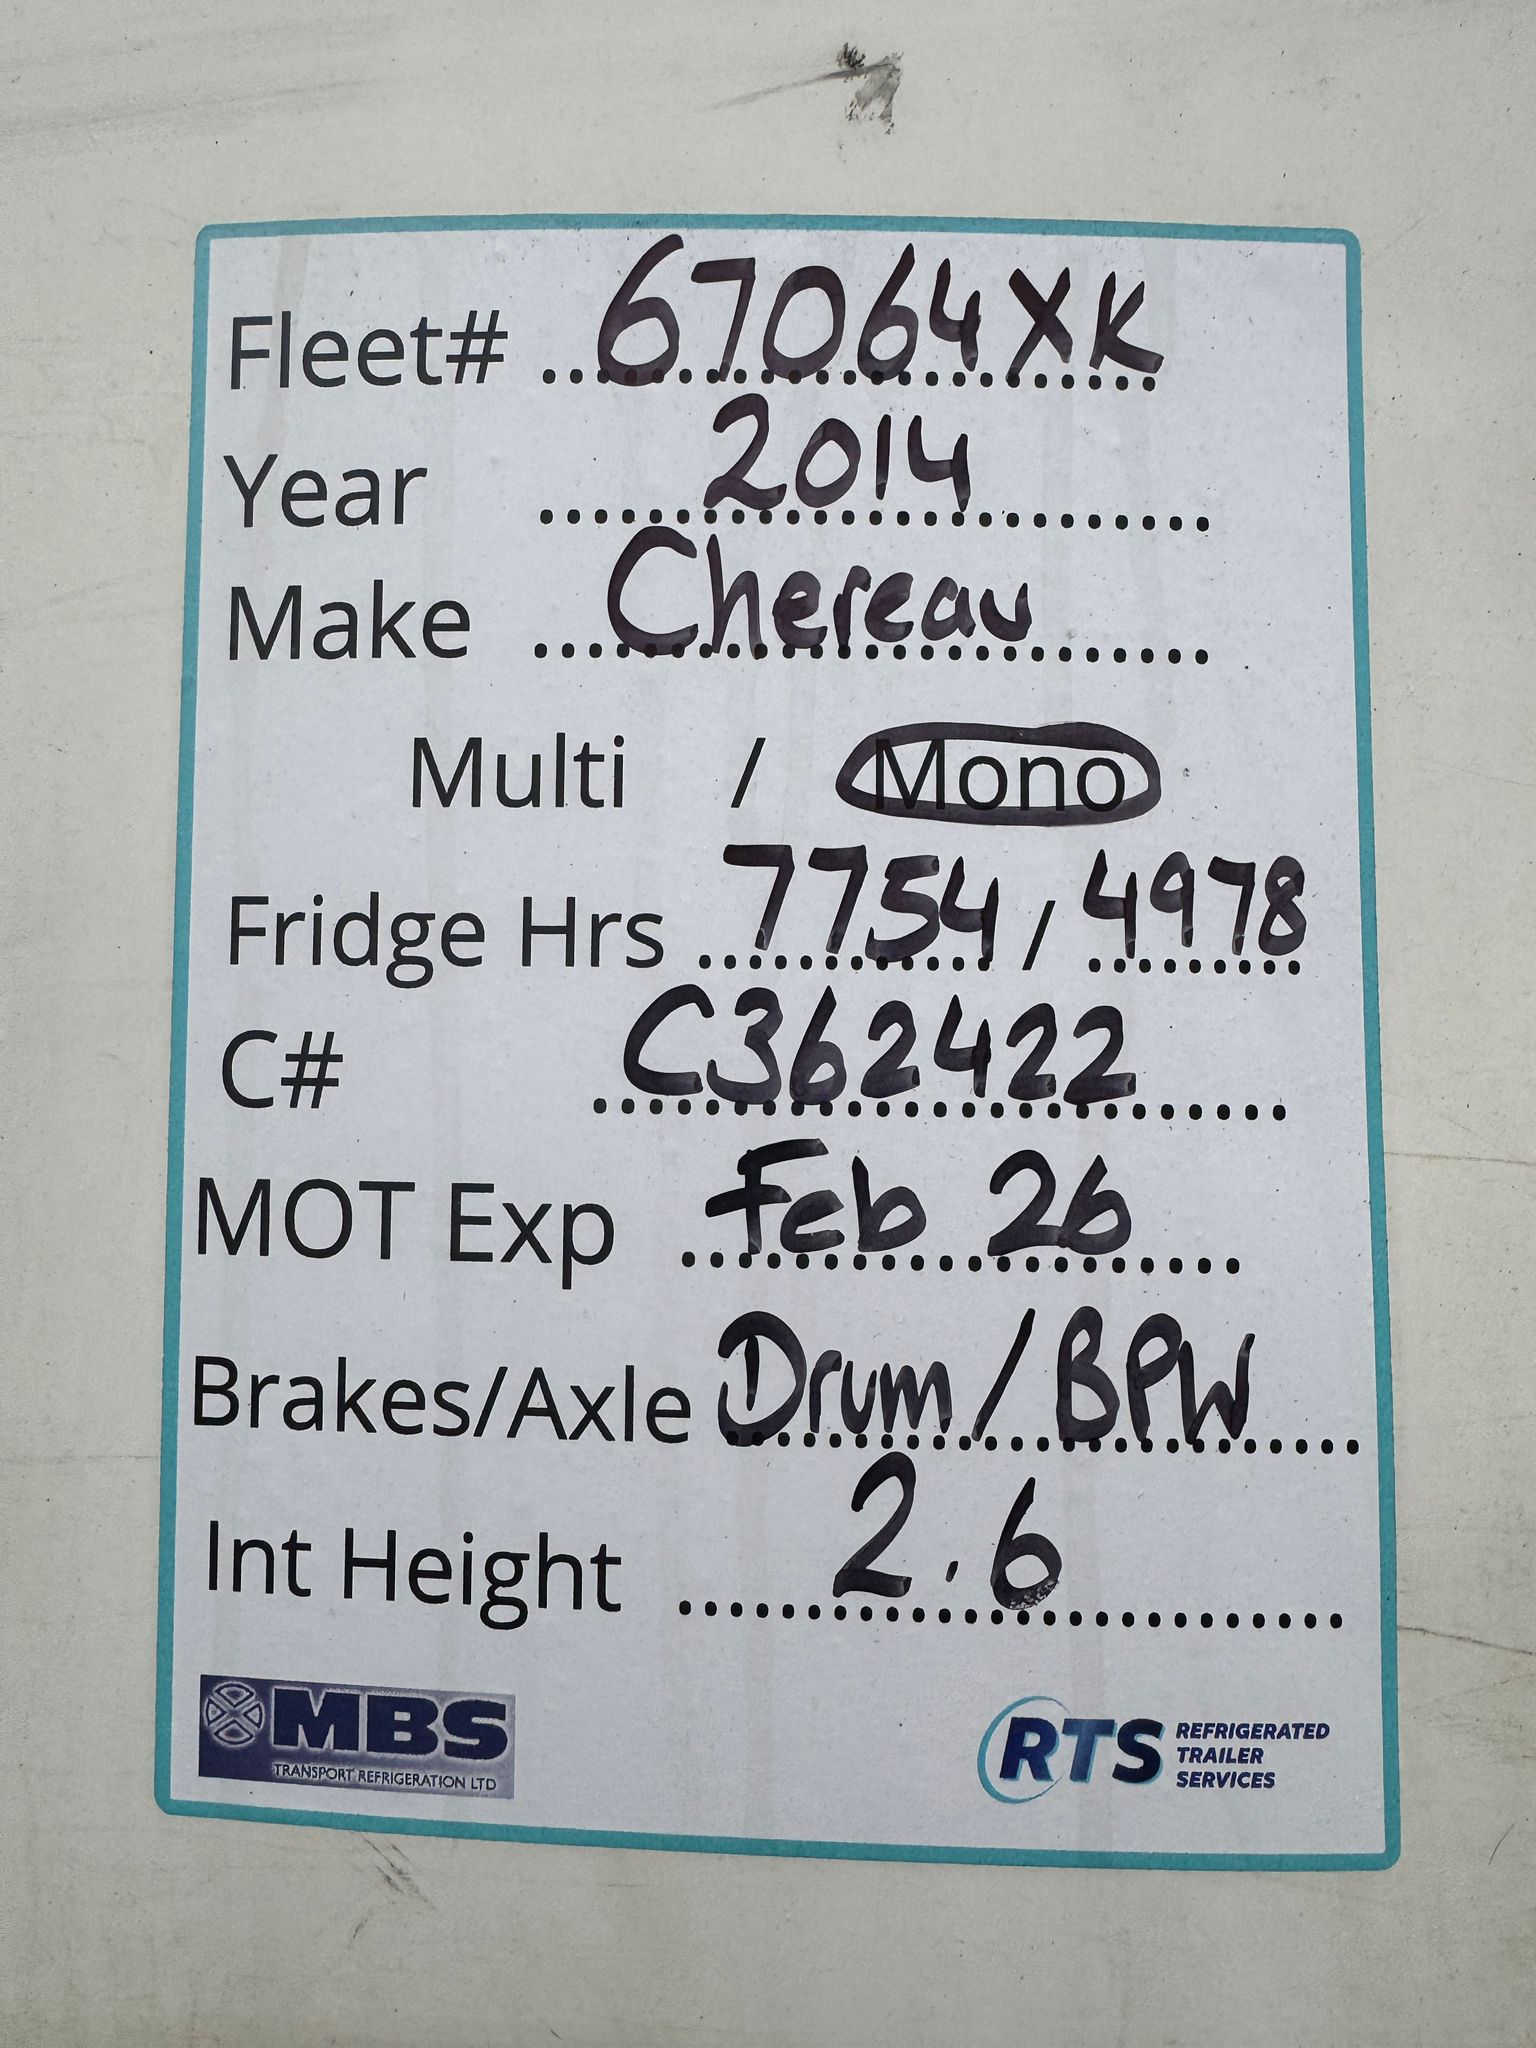 Fleet# 67064XK
Year 2014
Make Chereau
Multi / Mono
Fridge Hrs 7754 / 4978
C# C362422
MOT Exp Feb 26
Brakes/Axle Drum / BPW
Int Height 2.6
MBS
TRANSPORT REFRIGERATION LTD
RTS REFRIGERATED
TRAILER
SERVICES